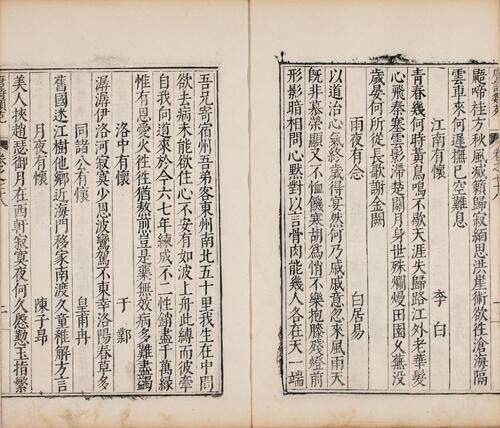 鼯啼桂方秋風滅籟歸寂緬思洪崖術欲往滄海隔
雲車來何遲撫已空歎息
江南有懷 李白
青春幾何時黃鳥鳴不歇天涯失歸路江外老華髮
心飛秦塞雲影滯楚關月身世殊爛熳田園久蕪没
歲晏何所從長歌謝金闕
雨夜有念 白居易
以道治心氣終歲得宴然何乃戚戚意忽来風雨天
既非慕榮顯又不恤饑寒胡為悄不樂抱膝殘燈前
形影暗相問心黙對以言骨肉能幾人各在天一端
吾兄寄宿州吾弟客東州南北五十里我生在中間
欲去病未能欲住心不安有如波上舟此縛而彼牽
自我向道來於今六七年練成不二性銷盡千萬緣
惟有恩愛火往往猶熬煎豈是藥無效病多難盡蠲
洛中有懷 于鄴
潺潺伊洛河寂寞少恩波鑾駕不東幸洛陽春草多
同諸公有懷 皇甫冉
舊國迷江樹他鄉近海門移家南渡久童稚解方言
月夜有懷 陳子昂
美人挾趙瑟微月在西軒寂寞夜何久慇懃玉指繁